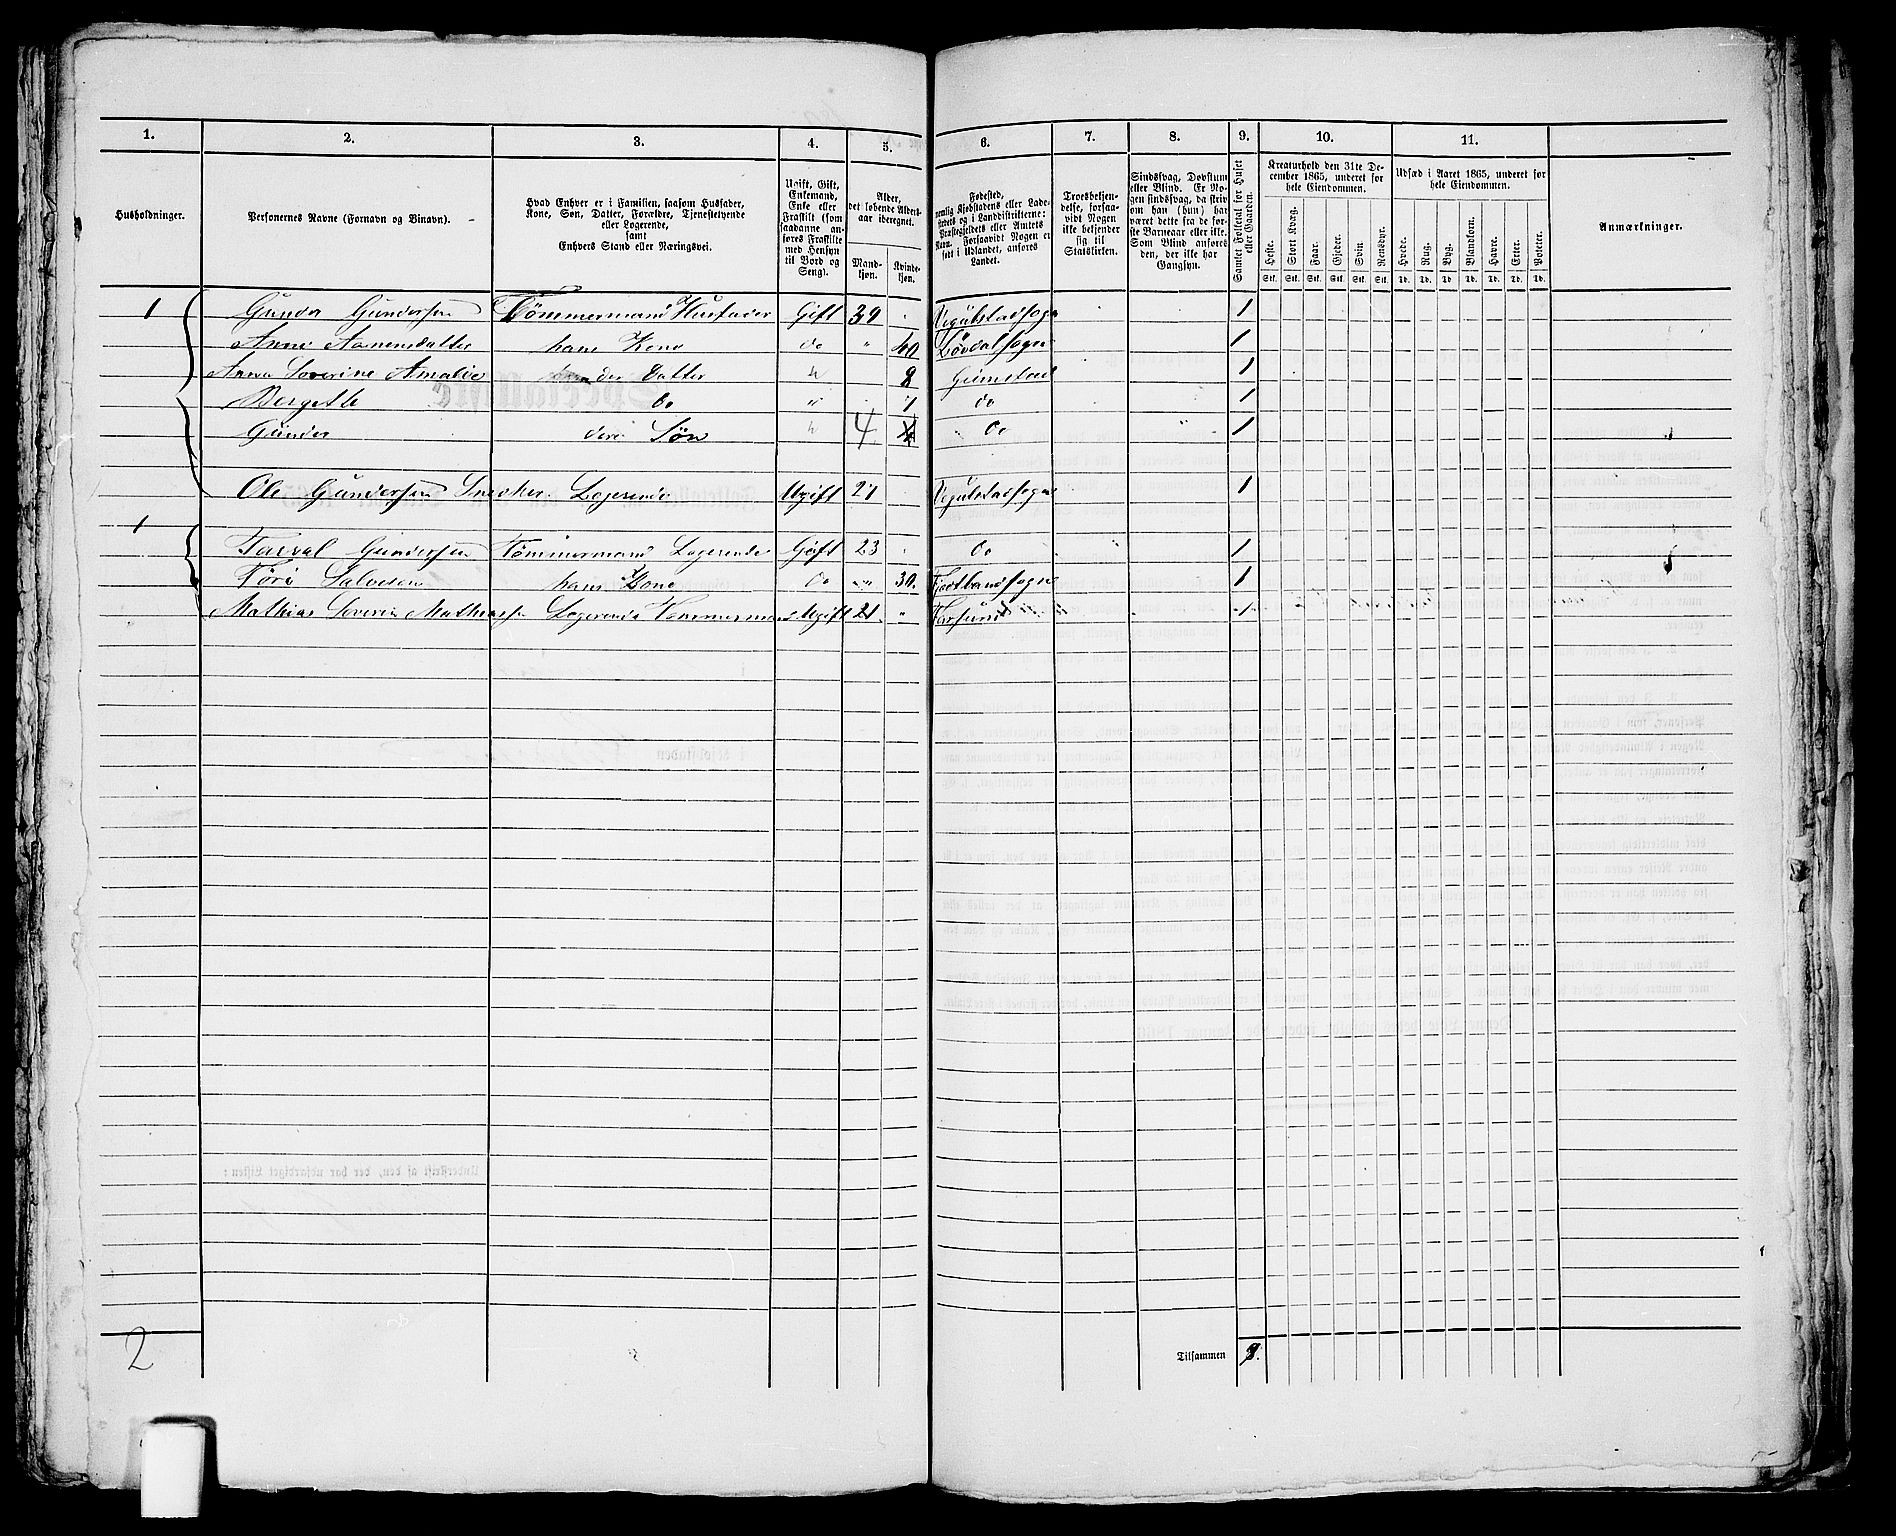 1. 2. 3. 4. 5. 6. 7. 8. 9. 10. 11.
Husholdninger.
Personernes Navne (Fornavn og Binavn).
Hvad Enhver er i Familien, saasom Husfader, Kone, Søn, Datter, Forældre, Tjenestetyende eller Logerende, samt Enhvers Stand eller Næringsvei.
Ugift, Gift, Enkemand, Enke eller Fraskilt (som saadanne anføres Fraskilte med Hensyn til Bord og Seng).
Alder, det løbende Alders-aar iberegnet.
Mandkjøn. Kvindekjøn.
Fødested, nemlig Kjøbstadens eller Ladestedets og i Landdistrikterne: Præstegjeldets eller Amtets Navn. Forsaavidt Nogen er født i Udlandet, anføres Landet.
Troesbekjendelse, forsaavidt Nogen ikke bekjender sig til Statskirken.
Sindssvag, Døvstum eller Blind. Er Nogen sindssvag, da skriv om han (hun) har været dette fra de første Barneaar eller ikke. Som Blind anføres den, der ikke har Gangsyn.
Samlet Folketal for Huset eller Gaarden.
Kreaturhold den 31te December 1865, underet for hele Eiendommen.
Heste. Stort Kvæg. Faar. Gjeder. Svin. Rensdyr.
Stk. Stk. Stk. Stk. Stk. Stk.
Udsæd i Aaret 1865, underet for hele Eiendommen.
Hvede. Rug. Byg. Blandkorn. Havre. Erter. Poteter.
Td. Td. Td. Td. Td. Td. Td.
Anmærkninger.
1 Gunder Gundersen Tømmermand Husfader Gift 39 1
Anne hans Kone do " 40 1
Anna Severine Amalie Datter " 8 Grimstad 1
Bergethe Do " 1 do 1
Gunder deres Søn " 4 Do 1
Ole Gundersen Snedker Logerende Ugift 21 1
1 Gundersen Tømmermand Logerende Gift 23 Do 1
Salvesen hans Kone Do " 30. 1
Mathias Severin Logerende Tømmermand Ugift 21. " Farsund 1
2
Tilsammen